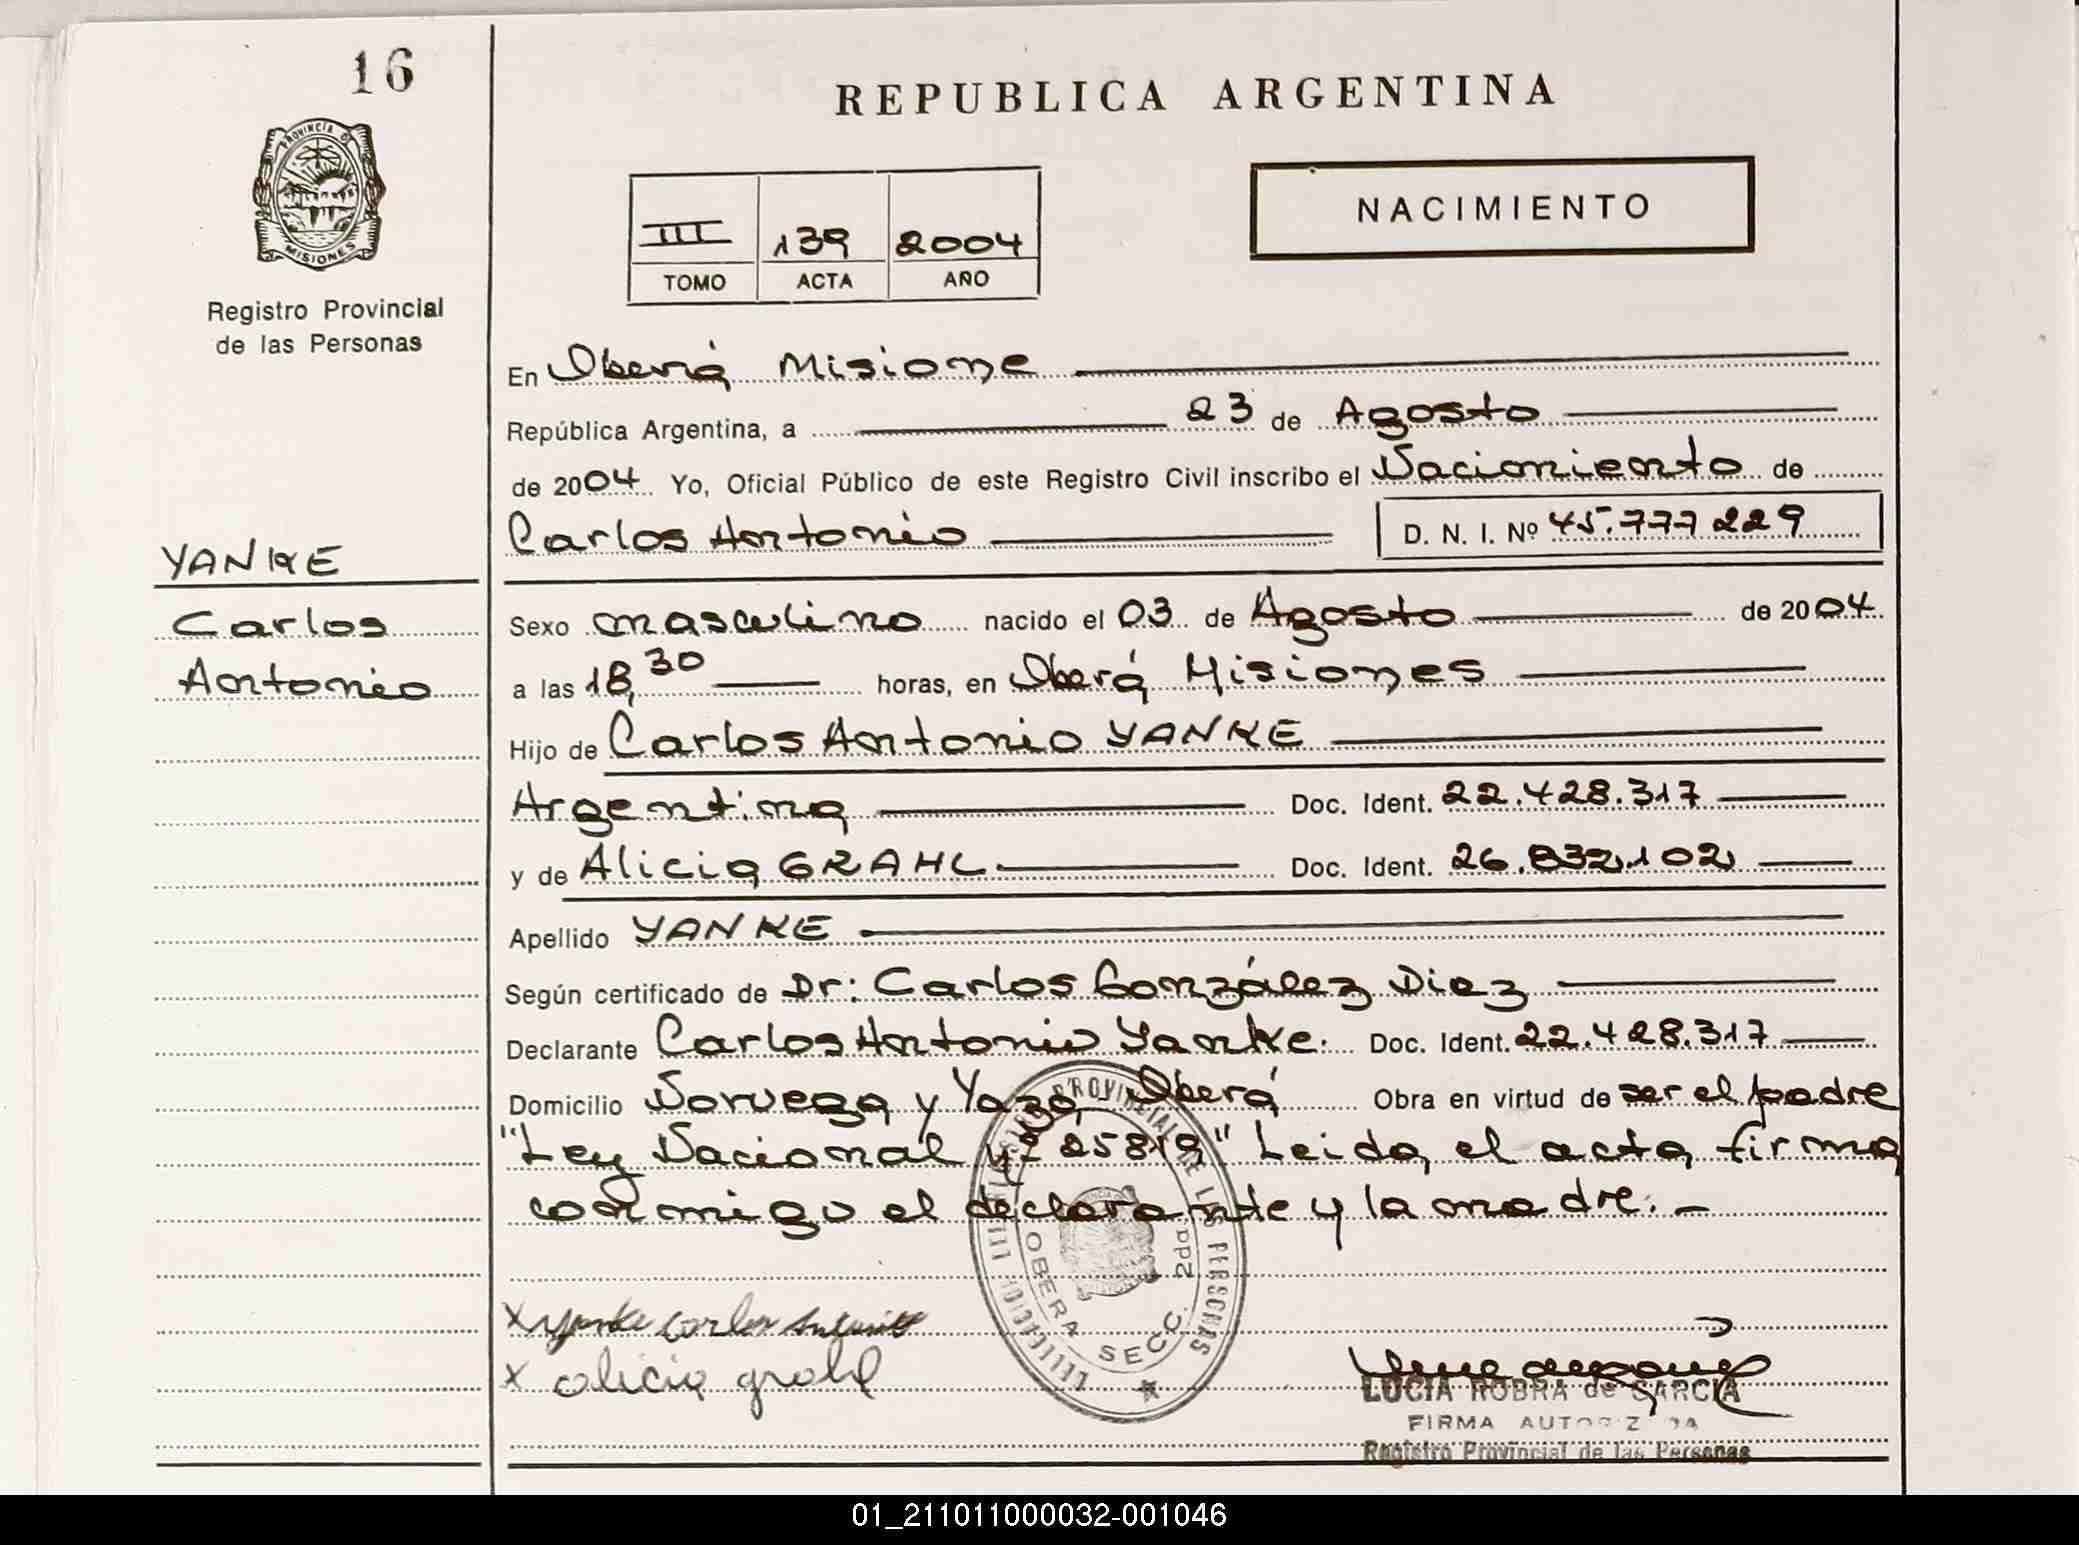 16
REPUBLICA ARGENTINA
PROVINCIA DE
MISIONES
NACIMIENTO
III 139 2004
TOMO ACTA AÑO
Registro Provincial
de las Personas
En Oberá Misione
República Argentina, a 23 de Agosto
de 2004 Yo, Oficial Público de este Registro Civil inscribo el Nacimiento de
Carlos Antonio D. N. I. Nº 45.777229
YANKE
Carlos
Antonio
Sexo masculino nacido el 03 de Agosto de 2004
a las 18,30 horas, en Oberá Misiones
Hijo de Carlos Antonio YANKE
Argentina Doc. Ident. 22.428.317
y de Alicia GRAHL Doc. Ident. 26.832.102
Apellido YANKE
Según certificado de Dr: Carlos González Diez
Declarante Carlos Antonio Yanke. Doc. Ident. 22.428.317
Domicilio Noruega y Yazá Oberá Obra en virtud de ser el padre
"Ley Nacional Nº 25819" Leida el acta firma
conmigo el declarante y la madre. -
PROVINCIAL DE LAS PERSONAS
OBERA SECC. 2da
x Yanke Carlos Antonio
x alicia grahl
LUCIA ROBRA de GARCIA
FIRMA AUTORIZADA
Registro Provincial de las Personas
01_211011000032-001046